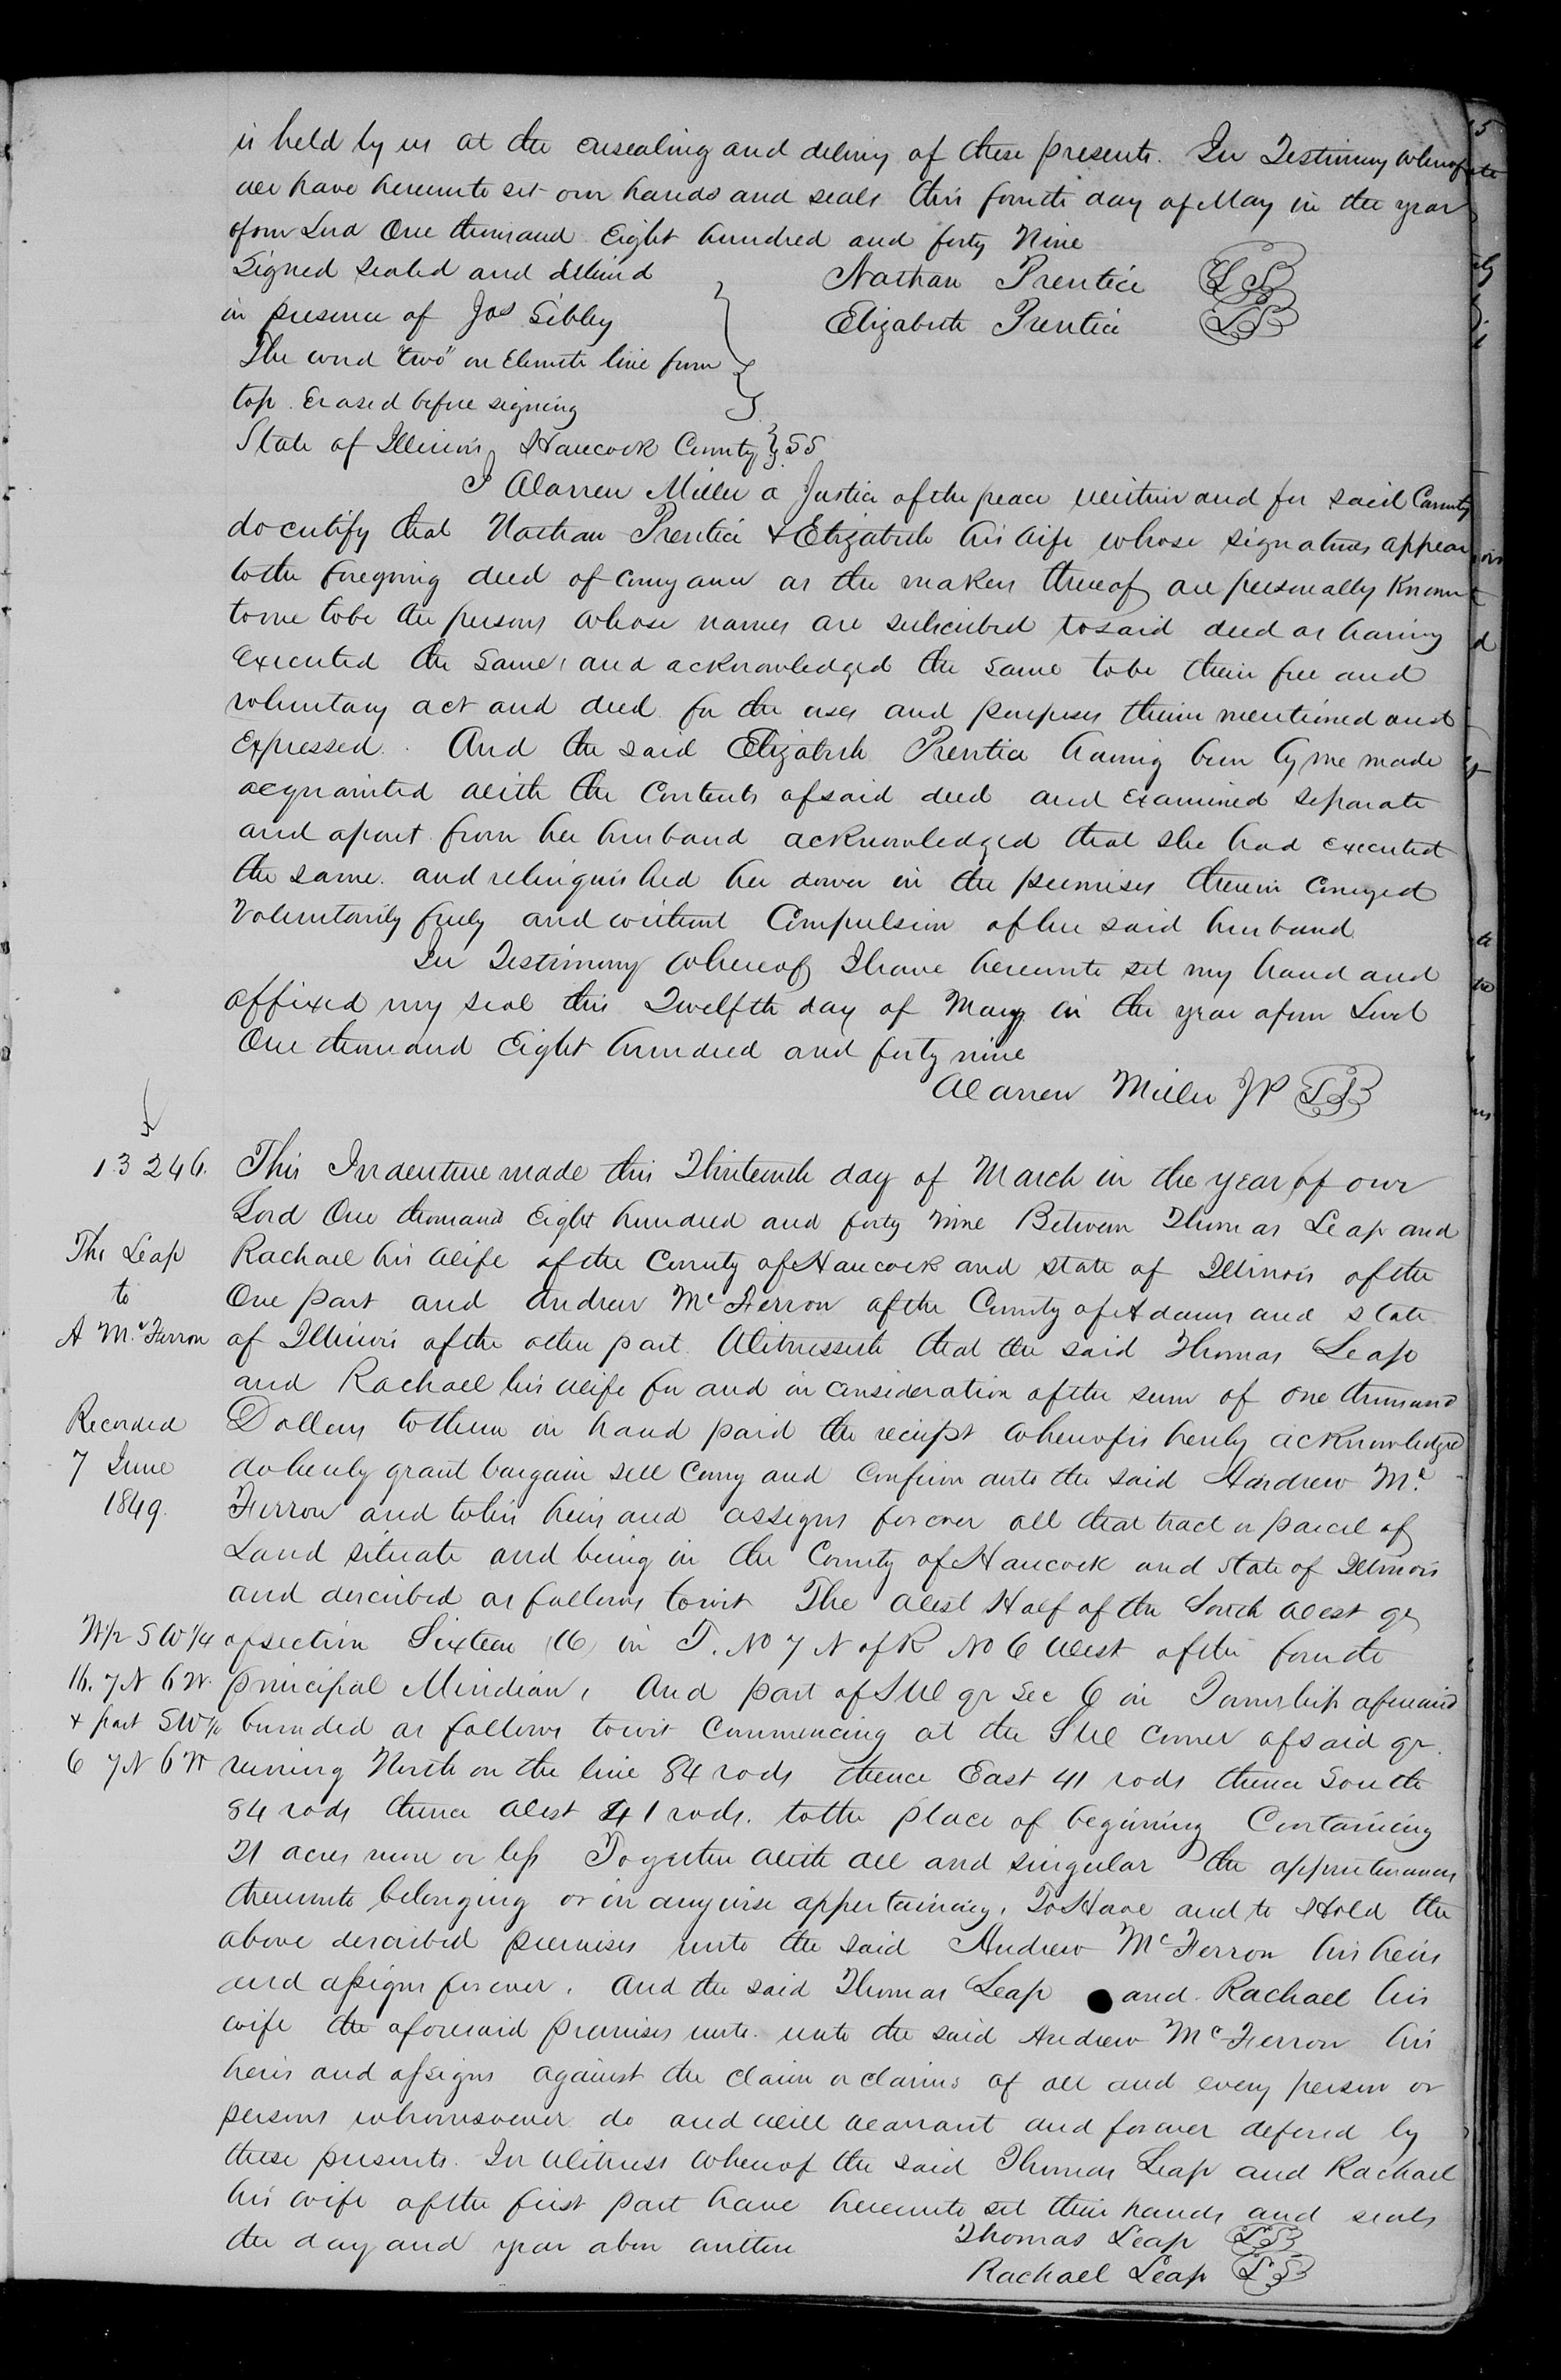 is held by us at the ensealing and delivery of these presents. In Testimony whereof
we have hereunto set our hands and seals this fourth day of May in the year
of our Lord One thousand Eight hundred and forty Nine
Signed sealed and delivered
Nathan Prentice LS
in presence of Jos Sibley
Elizabeth Prentice LS
The word "two" on Eleventh line from
top. Erased before signing
State of Illinois Hancock County } SS
I Warren Miller a Justice of the peace within and for said County
do certify that Nathan Prentice & Elizabeth his wife whose signatures appear
to the foregoing deed of conveyance as the makers thereof are personally Known
to me to be the persons whose names are subscribed to said deed as having
Executed the Same, and acknowledged the same to be their free and
voluntary act and deed for the uses and purposes therein mentioned and
Expressed. And the said Elizabeth Prentice having been by me made
acquainted with the Contents of said deed and Examined Separate
and apart from her husband acknowledged that she had executed
the same. and relinquished her dower in the premises therein Conveyed
Voluntarily freely and without Compulsion of her said husband.
In Testimony Whereof I have hereunto set my hand and
affixed my seal this Twelfth day of May in the year of our Lord
One thousand Eight hundred and forty nine
Warren Miller JP LS
13246. This Indenture made this Thirteenth day of March in the year of our
Lord One thousand Eight hundred and forty Nine Between Thomas Leap and
Ths Leap Rachael his Wife of the County of Hancock and state of Illinois of the
to One part and Andrew Mc Ferron of the County of Adams and state
A Mc Ferron of Illinois of the other part. Witnesseth that the said Thomas Leap
and Rachael his wife for and in consideration of the sum of one thousand
Recorded Dollars to them in hand paid the receipt whereof is hereby acknowledged
7 June do hereby grant bargain sell Convey and Confirm unto the said Andrew Mc
1849. Ferron and to his heirs and assigns forever all that tract or parcel of
Land situate and being in the County of Hancock and State of Illinois
and described as follows to wit The West Half of the South West qr
W 1/2 SW 1/4 of section Sixteen (16) in T. No 7 N of R No 6 West of the fourth
16. 7N 6W. principal Meridian, And part of S W qr Sec 6 in Township aforesaid
& part SW 1/4 bounded as follows to wit Commencing at the S W Corner of said qr.
6 7N 6W running North on the line 84 rods thence East 41 rods thence South
84 rods thence West 41 rods. to the place of beginning Containing
21 acres more or less Together with all and singular the appurtenances
thereunto belonging or in anywise appertaining, To Have and to Hold the
above described premises unto the said Andrew Mc Ferron his heirs
and assigns forever. And the said Thomas Leap and Rachael his
wife the aforesaid premises unto. unto the said Andrew Mc Ferron his
heirs and assigns against the claim or claims of all and every person or
persons whomsoever do and will warrant and forever defend by
these presents. In Witness Whereof the said Thomas Leap and Rachael
his wife of the first part have hereunto set their hands and seals
the day and year above written Thomas Leap LS
Rachael Leap LS